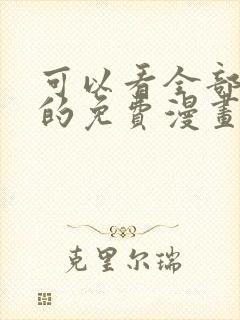 可以看全部
的免费漫画
克里尔瑞